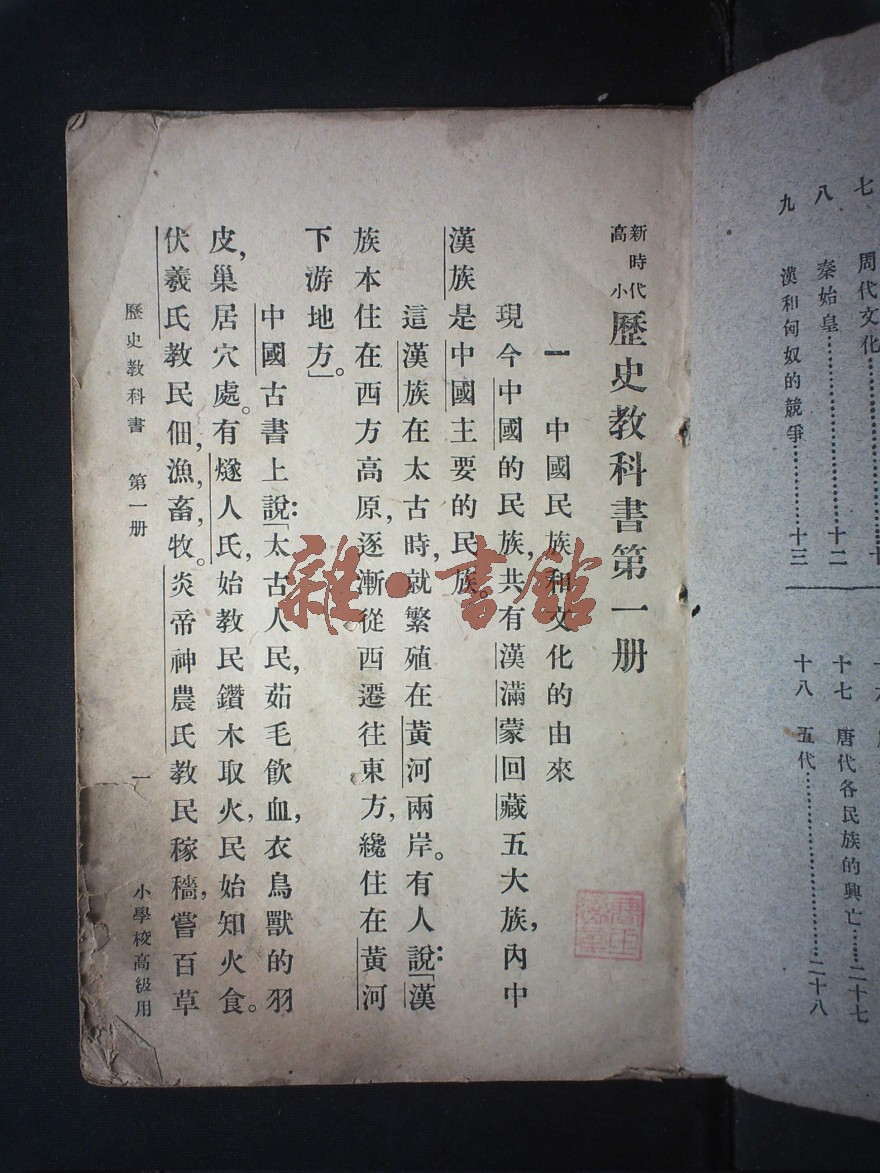 七 周代文化
八 秦始皇………十二
九 漢和匈奴的競爭………十三
十七 唐代各民族的興亡……二十七
十八 五代………二十八
新時代高小歷史教科書第一册
一 中國民族和文化的由來
現今中國的民族,共有漢滿蒙回藏五大族,內中
漢族是中國主要的民族。
這漢族在太古時,就繁殖在黃河兩岸。有人說:「漢
族本住在西方高原,逐漸從西遷往東方,纔住在黃河
下游地方」。
中國古書上說:「太古人民,茹毛飲血,衣鳥獸的羽
皮,巢居穴處。有燧人氏,始教民鑽木取火,民始知火食。
伏羲氏教民佃,漁,畜,牧。炎帝神農氏教民稼穡,嘗百草
歷史教科書 第一册 一 小學校高級用
雜·書館